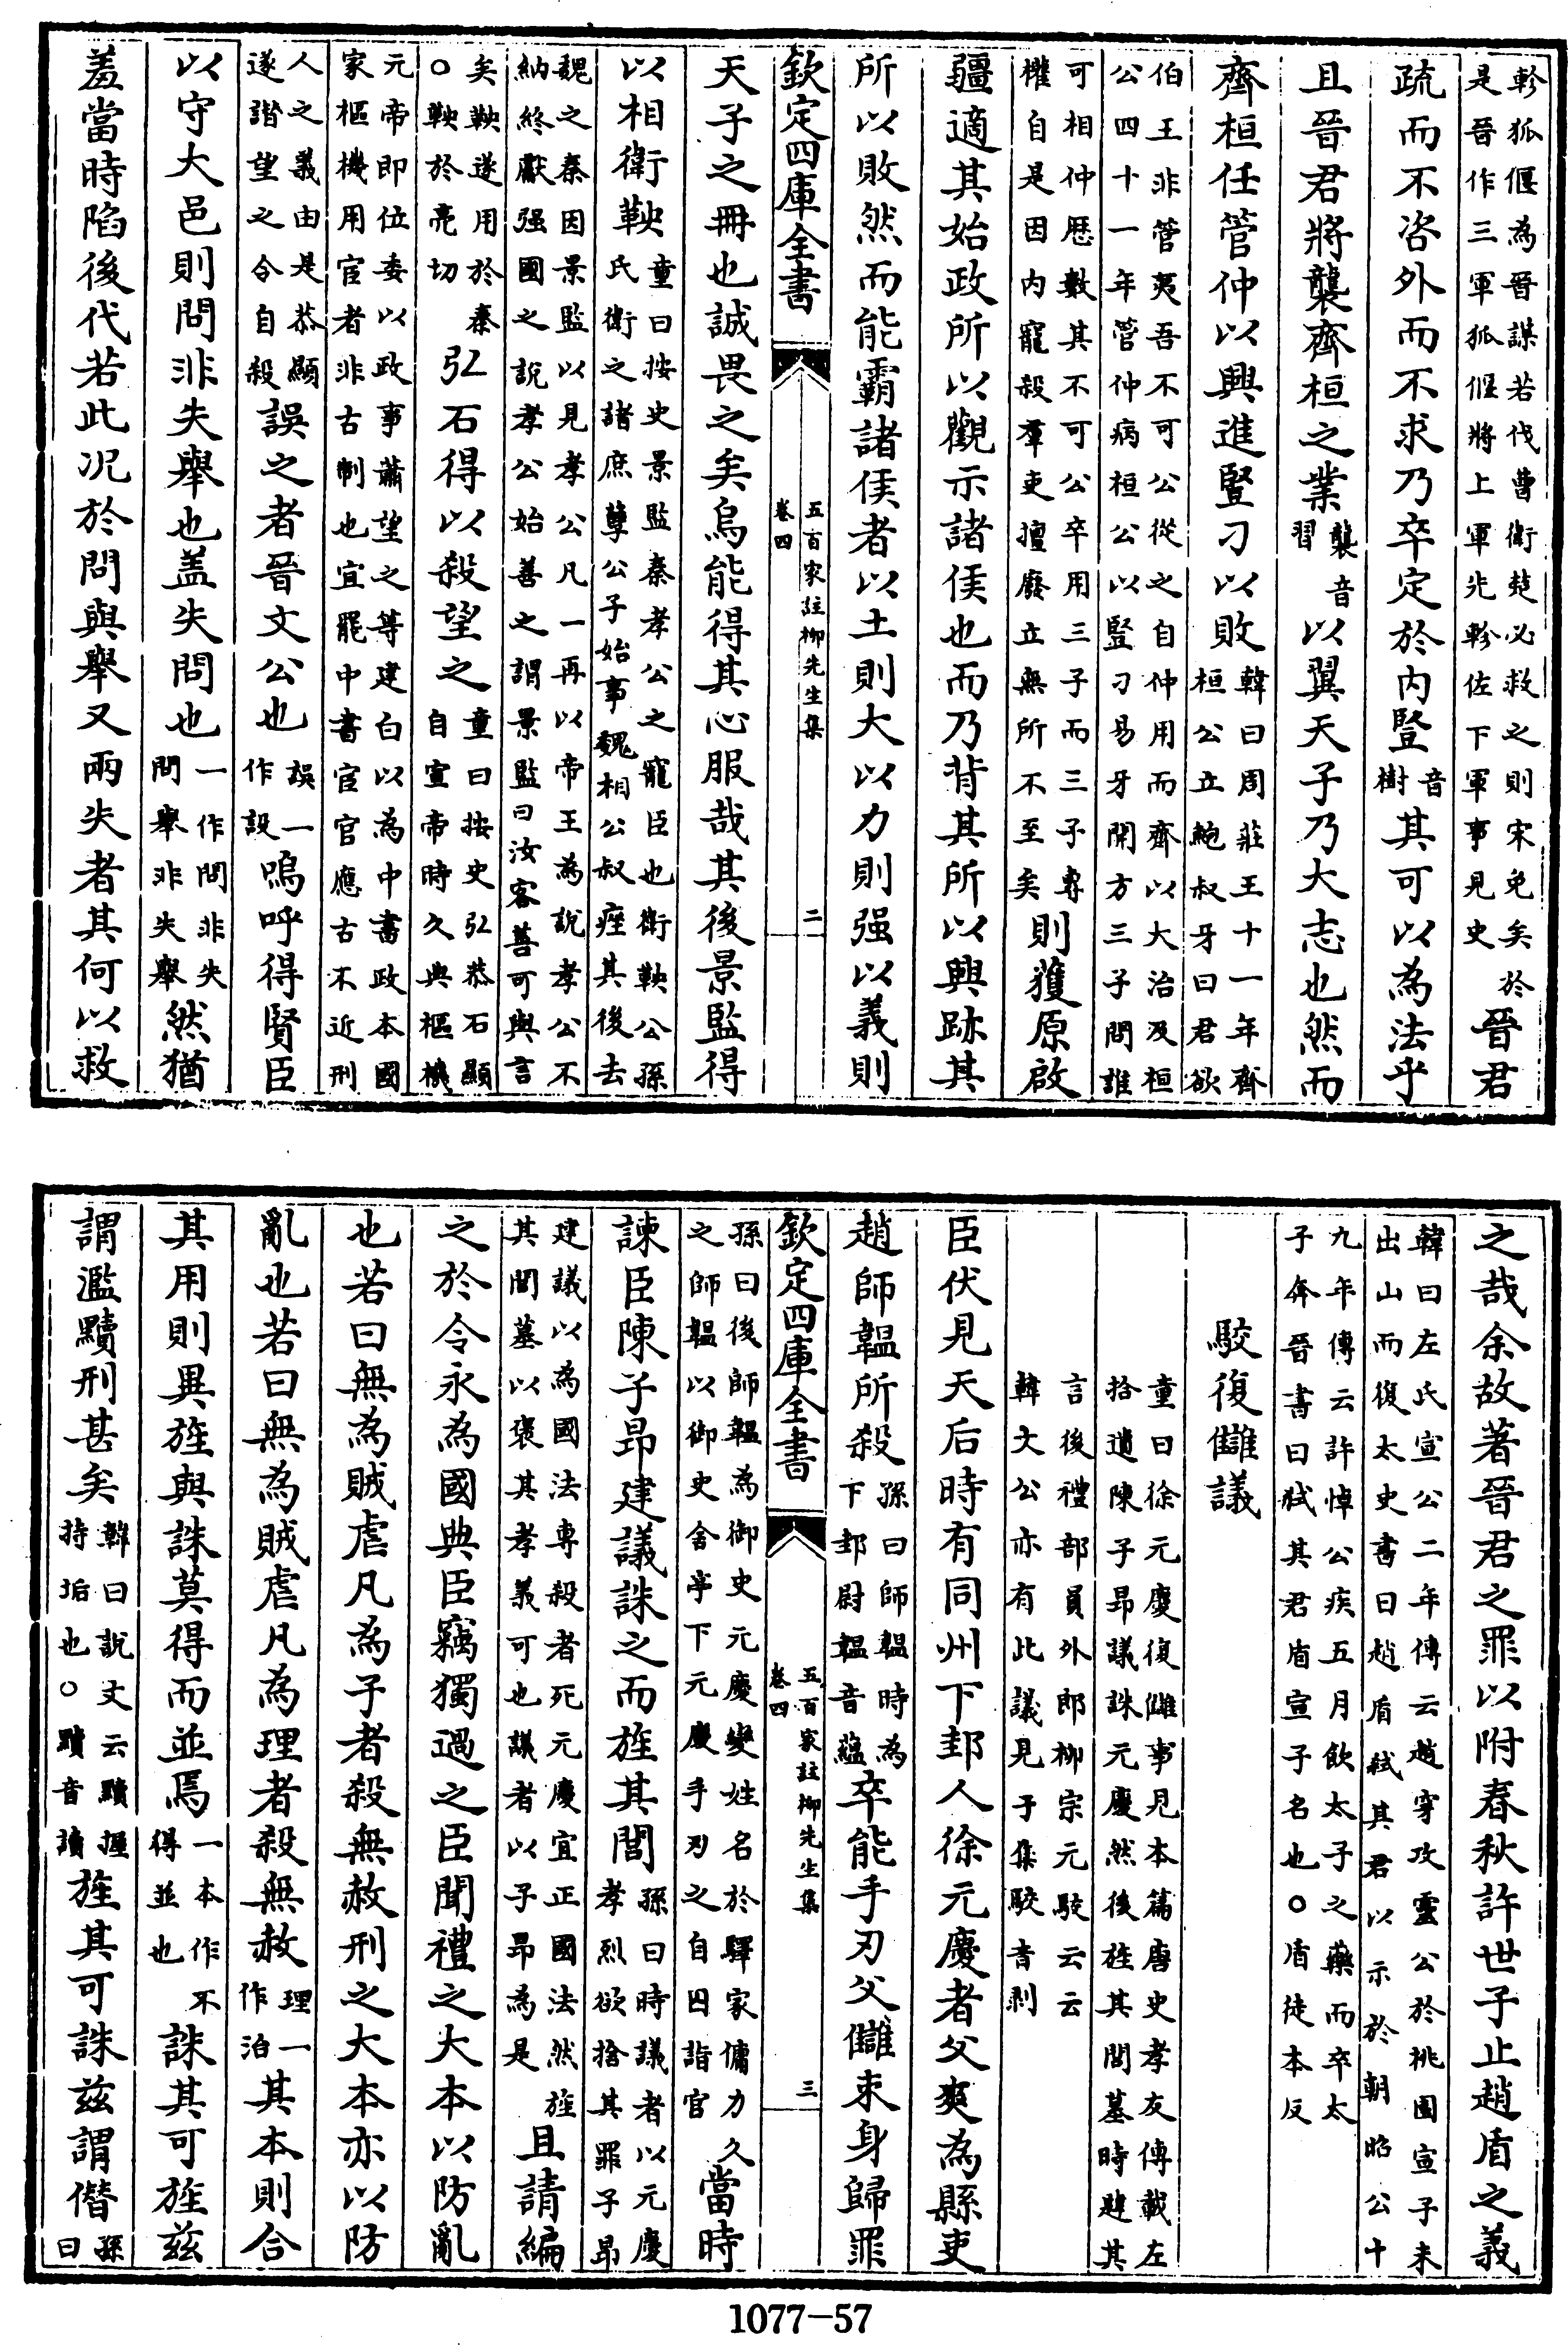 軫狐偃為晉謀若伐曹衛楚必救之則宋免矣於是晉作三軍狐偃將上軍先軫佐下軍事見史晉君
疏而不咨外而不求乃卒定於内豎音樹其可以為法乎
且晉君將襲齊桓之業襲音習以翼天子乃大志也然而
齊桓任管仲以興進豎刁以敗韓曰周莊王十一年齊桓公立鮑叔牙曰君欲
伯王非管夷吾不可公從之自仲用而齊以大治及桓公四十一年管仲病桓公以豎刁易牙開方三子問誰
可相仲歴數其不可公卒用三子而三子專權自是因内寵殺羣吏擅廢立無所不至矣則獲原啟
疆適其始政所以觀示諸侯也而乃背其所以興跡其
所以敗然而能霸諸侯者以土則大以力則强以義則
欽定四庫全書
五百家註柳先生集
卷四
二
天子之冊也誠畏之矣烏能得其心服哉其後景監得
以相衛鞅童曰按史景監秦孝公之寵臣也衛鞅公孫氏衛之諸庶孽公子始事魏相公叔痤其後去
魏之秦因景監以見孝公凡一再以帝王為說孝公不納終獻强國之說孝公始善之謂景監曰汝客善可與言
矣鞅遂用於秦○鞅於亮切弘石得以殺望之童曰按史弘恭石顯自宣帝時久典樞機
元帝即位委以政事蕭望之等建白以為中書政本國家樞機用宦者非古制也宜罷中書宦官應古不近刑
人之義由是恭顯遂譖望之令自殺誤之者晉文公也誤一作設嗚呼得賢臣
以守大邑則問非失舉也盖失問也一作問非失問舉非失舉然猶
羞當時陷後代若此况於問與舉又兩失者其何以救
之哉余故著晉君之罪以附春秋許世子止趙盾之義
韓曰左氏宣公二年傳云趙穿攻靈公於桃園宣子未出山而復太史書曰趙盾弑其君以示於朝昭公十
九年傳云許悼公疾五月飲太子之藥而卒太子奔晉書曰弑其君盾宣子名也○盾徒本反
駮復讎議
童曰徐元慶復讎事見本篇唐史孝友傳載左拾遺陳子昂議誅元慶然後旌其閭墓時韙其
言後禮部員外郎柳宗元駮云云韓文公亦有此議見于集駮音剥
臣伏見天后時有同州下邽人徐元慶者父爽為縣吏
趙師韞所殺孫曰師韞時為下邽尉韞音藴卒能手刃父讎束身歸罪
欽定四庫全書
五百家註柳先生集
卷四
三
孫曰後師韞為御史元慶變姓名於驛家傭力久之師韞以御史舍亭下元慶手刃之自囚詣官當時
諫臣陳子昂建議誅之而旌其閭孫曰時議者以元慶孝烈欲捨其罪子昂
建議以為國法專殺者死元慶宜正國法然旌其閭墓以褒其孝義可也議者以子昂為是且請編
之於令永為國典臣竊獨過之臣聞禮之大本以防亂
也若曰無為賊虐凡為子者殺無赦刑之大本亦以防
亂也若曰無為賊虐凡為理者殺無赦理一作治其本則合
其用則異旌與誅莫得而並焉一本作不得並也誅其可旌兹
謂濫黷刑甚矣韓曰說文云黷握持垢也○黷音讀旌其可誅兹謂僭孫曰
1077-57